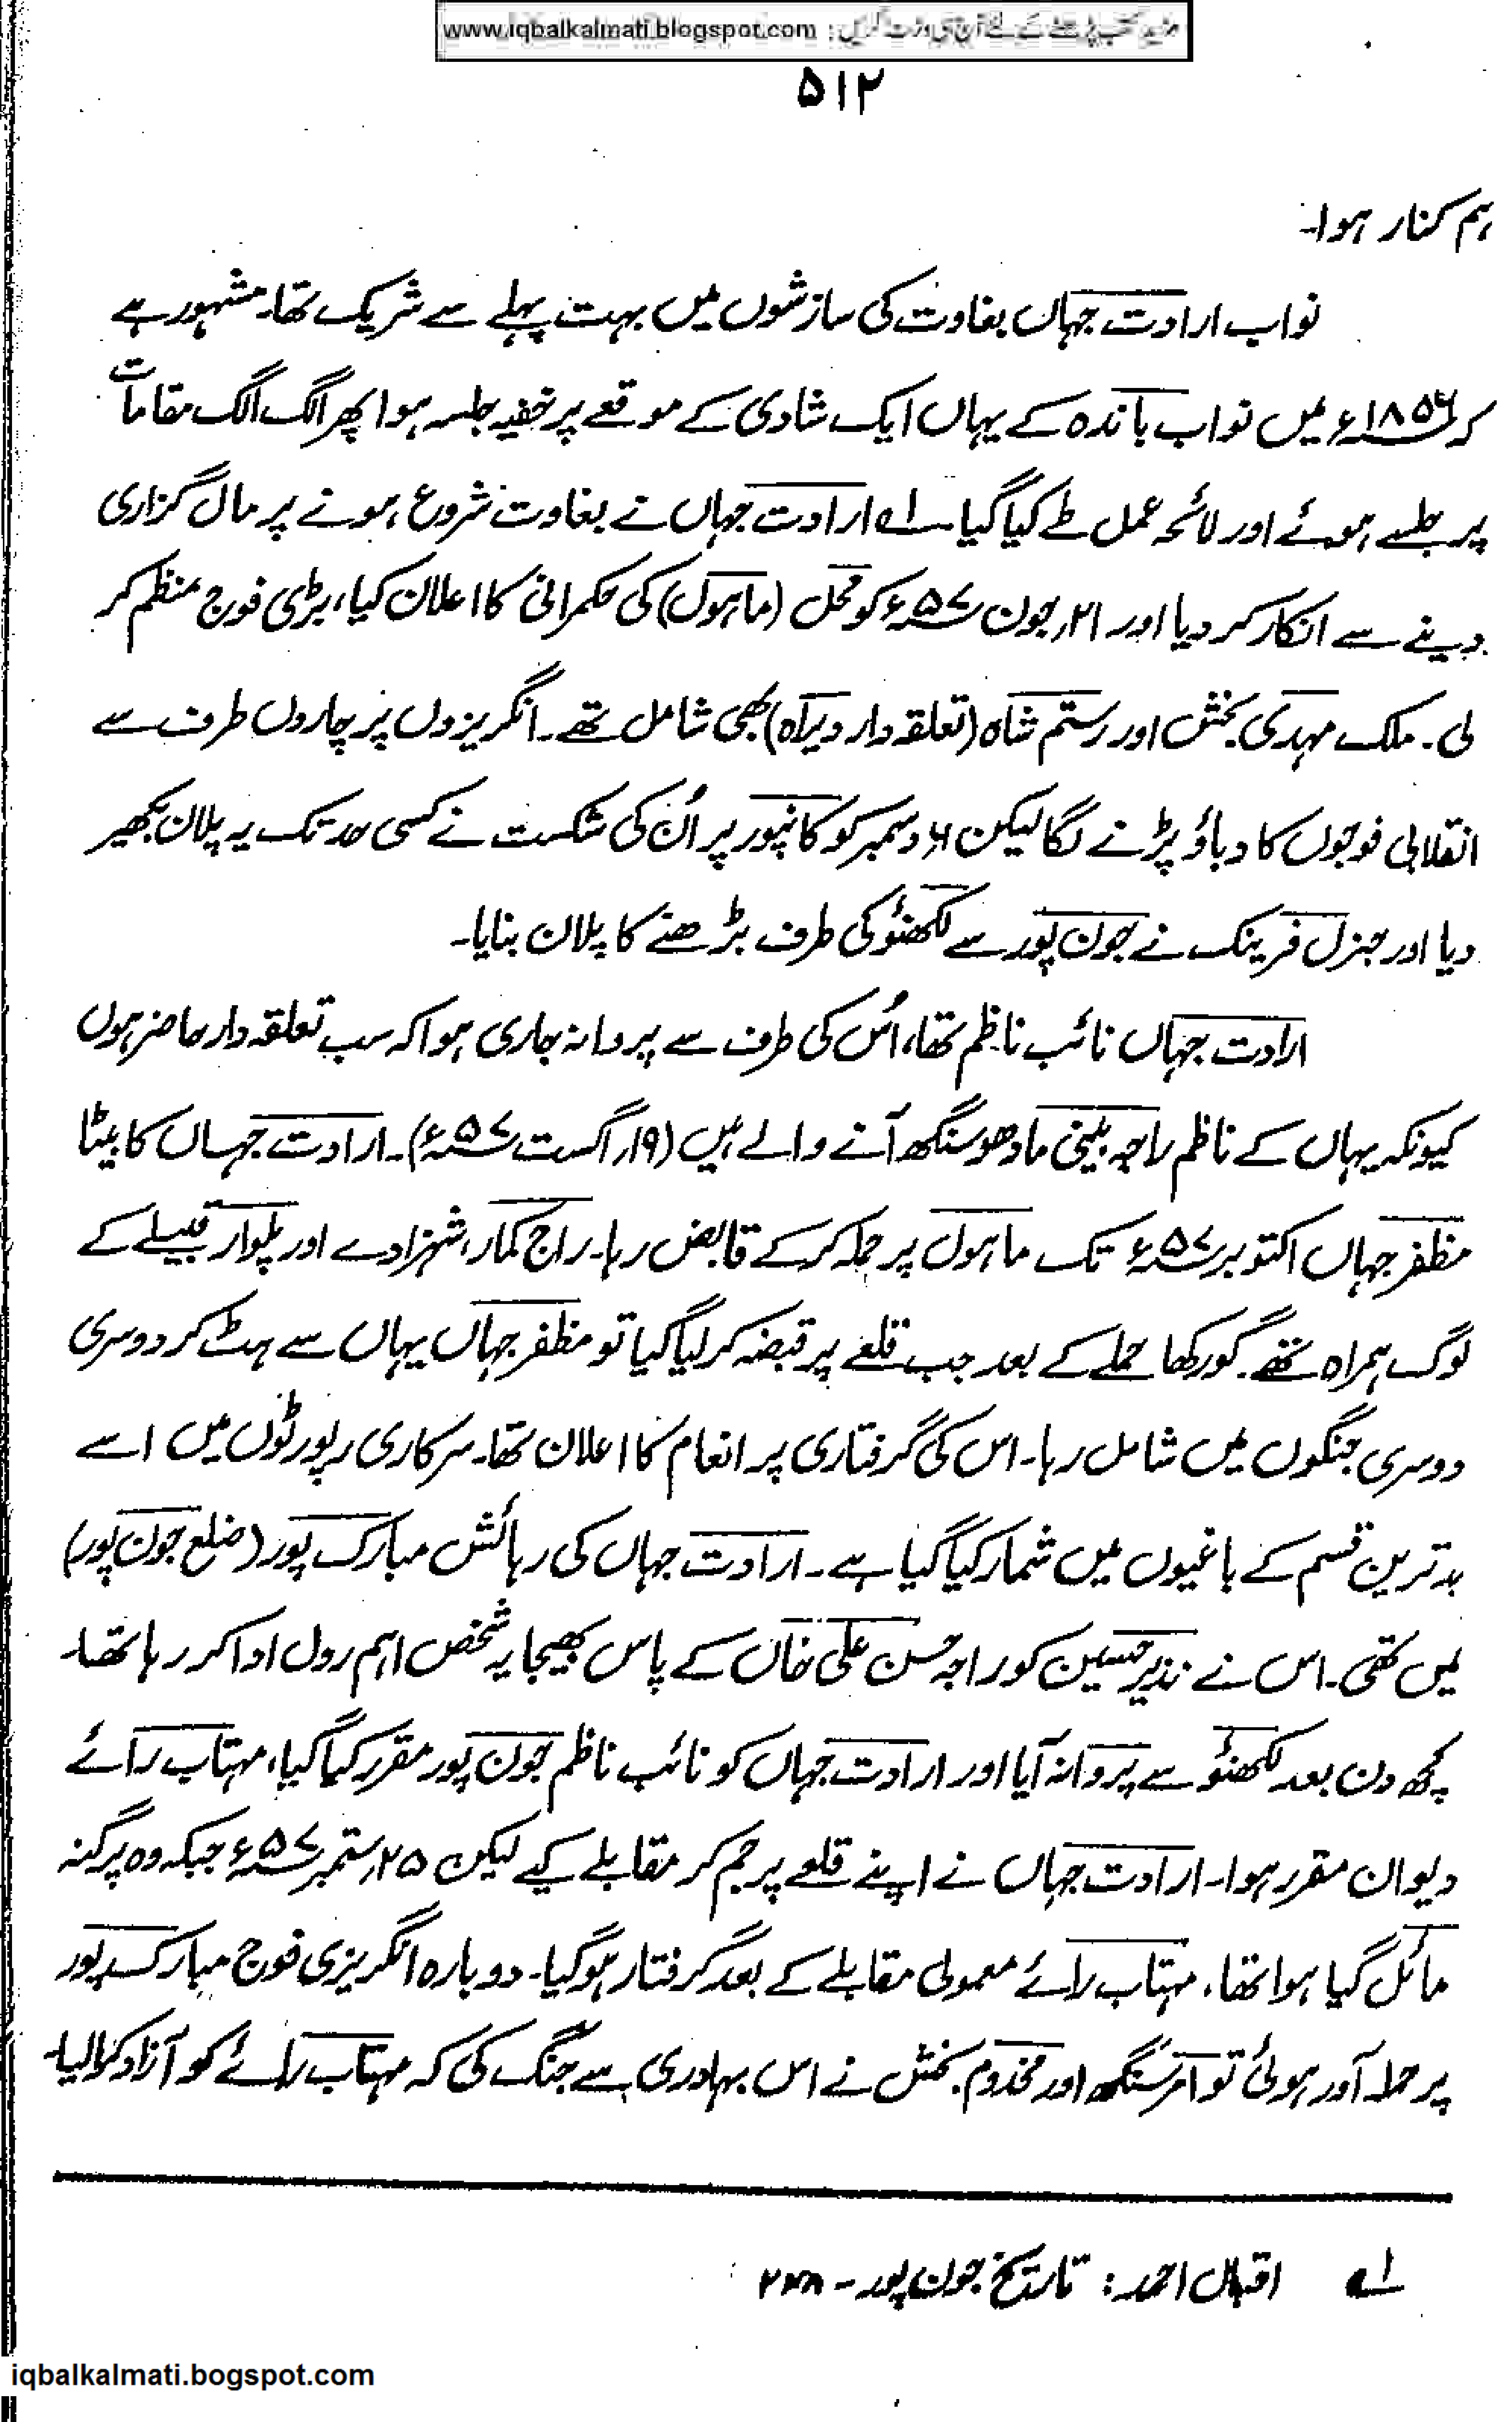 مزید کتب پڑھنے کے لئے آج ہی وزٹ کریں : www.iqbalkalmati.blogspot.com
۵۱۲
ہم کنار ہوا۔
نواب ارادت جہاں بغاوت کی سازشوں میں بہت پہلے سے شریک تھا۔ مشہور ہے
کہ ۱۸۵۶ء میں نواب باندہ کے یہاں ایک شادی کے موقعے پر خفیہ جلسہ ہوا پھر الگ الگ مقامات
پر جلسے ہوئے اور لائحہ عمل طے کیا گیا۔ ۱ے ارادت جہاں نے بغاوت شروع ہونے پر مال گزاری
دینے سے انکار کر دیا اور ۲۱؍جون ۵۷ء کو محل (ماہول) کی حکمرانی کا اعلان کیا، بڑی فوج منظم کر
لی۔ ملک مہدی بخش اور رستم شاہ (تعلقہ دار دیراہ) بھی شامل تھے۔ انگریزوں پر چاروں طرف سے
انقلابی فوجوں کا دباؤ پڑنے لگا لیکن ۶؍دسمبر کو کانپور پر اُن کی شکست نے کسی حد تک یہ پلان بکھیر
دیا اور جنرل فرینک نے جون پور سے لکھنؤ کی طرف بڑھنے کا پلان بنایا۔
ارادت جہاں نائب ناظم تھا، اُس کی طرف سے پروانہ جاری ہوا کہ سب تعلقہ دار حاضر ہوں
کیونکہ یہاں کے ناظم راجہ بینی مادھو سنگھ آنے والے ہیں (۱۹؍اگست ۵۷ء)۔ ارادت جہاں کا بیٹا
مظفر جہاں اکتوبر ۵۷ء تک ماہول پر حملہ کر کے قابض رہا۔ راج کمار، شہزادے اور پلوار قبیلے کے
لوگ ہمراہ تھے۔ گورکھا حملے کے بعد جب قلعے پر قبضہ کر لیا گیا تو مظفر جہاں یہاں سے ہٹ کر دوسری
دوسری جنگوں میں شامل رہا۔ اس کی گرفتاری پر انعام کا اعلان تھا۔ سرکاری رپورٹوں میں اسے
بدترین قسم کے باغیوں میں شمار کیا گیا ہے۔ ارادت جہاں کی رہائش مبارک پور (ضلع جون پور)
میں تھی۔ اس نے نذیر حسین کو راجہ حسن علی خاں کے پاس بھیجا یہ شخص اہم رول ادا کر رہا تھا۔
کچھ دن بعد لکھنؤ سے پروانہ آیا اور ارادت جہاں کو نائب ناظم جون پور مقرر کیا گیا، مہتاب رائے
دیوان مقرر ہوا۔ ارادت جہاں نے اپنے قلعے پر جم کر مقابلے کیے لیکن ۲۵؍ستمبر ۵۷ء جبکہ وہ پرگنہ
مائل گیا ہوا تھا، مہتاب رائے معمولی مقابلے کے بعد گرفتار ہو گیا۔ دوبارہ انگریزی فوج مبارک پور
پر حملہ آور ہوئی تو امر سنگھ اور مخدوم بخش نے اس بہادری سے جنگ کی کہ مہتاب رائے کو آزاد کرا لیا۔
۱ے اقبال احمد: تاریخ جون پور -
iqbalkalmati.bogspot.com